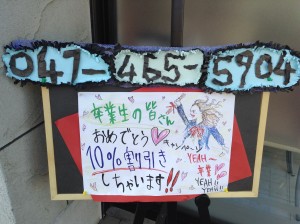 047-465-5904
卒業生の皆さん
おめでとう
キャンペーン
10%割引き
しちゃいます!!
YEAH~
卒業
YEAH!!
YEAH!!